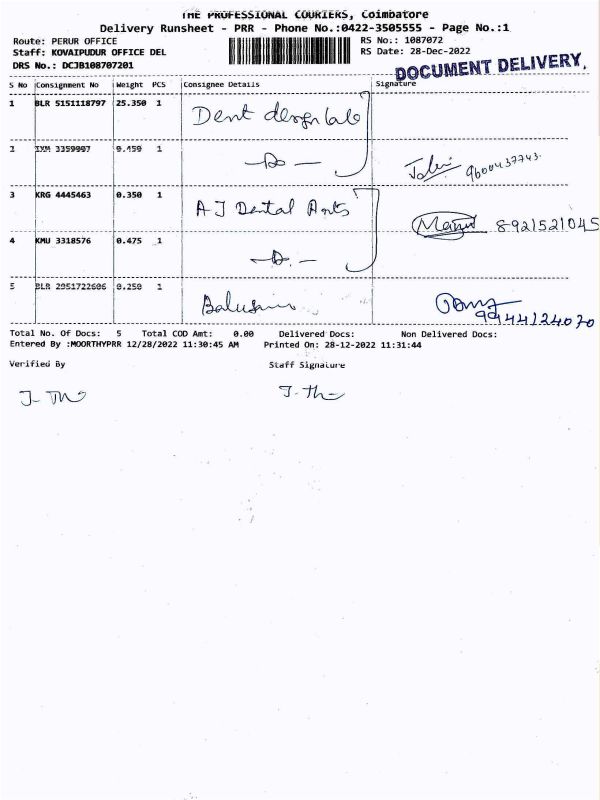 THE PROFESSIONAL COURIERS, Coimbatore
Delivery Runsheet - PRR - Phone No.:0422-3505555 - Page No.:1
Route: PERUR OFFICE RS No.: 1087072
Staff: KOVAIPUDUR OFFICE DEL RS Date: 28-Dec-2022
DRS No.: DCJB108707201
DOCUMENT DELIVERY.
S No Consignment No Weight PCS Consignee Details Signature
1 BLR 5151118797 25.350 1 Dent design lab
2 IXM 3359997 0.159 1 9600437743
3 KRG 4445463 0.350 1 AJ Dental Arts 8921521045
4 KMU 3318576 0.475 1
5 BLR 2951722606 0.250 1 9944124070
Total No. Of Docs: 5 Total COD Amt: 0.00 Delivered Docs: Non Delivered Docs:
Entered By :MOORTHYPRR 12/28/2022 11:30:45 AM Printed On: 28-12-2022 11:31:44
Verified By Staff Signature